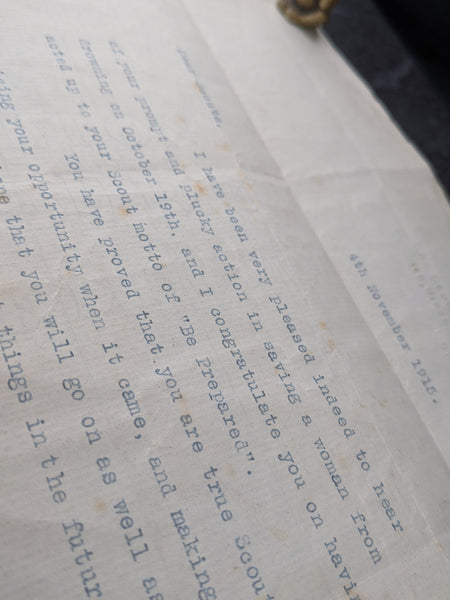 4th November 1915.
Dear Scouts,
I have been very pleased indeed to hear
of your prompt and plucky action in saving a woman from
drowning on October 19th, and I congratulate you on
acted up to your Scout motto of "Be Prepared".
You have proved that you are true
your opportunity when it came, and making
that you will go on as well as
things in the